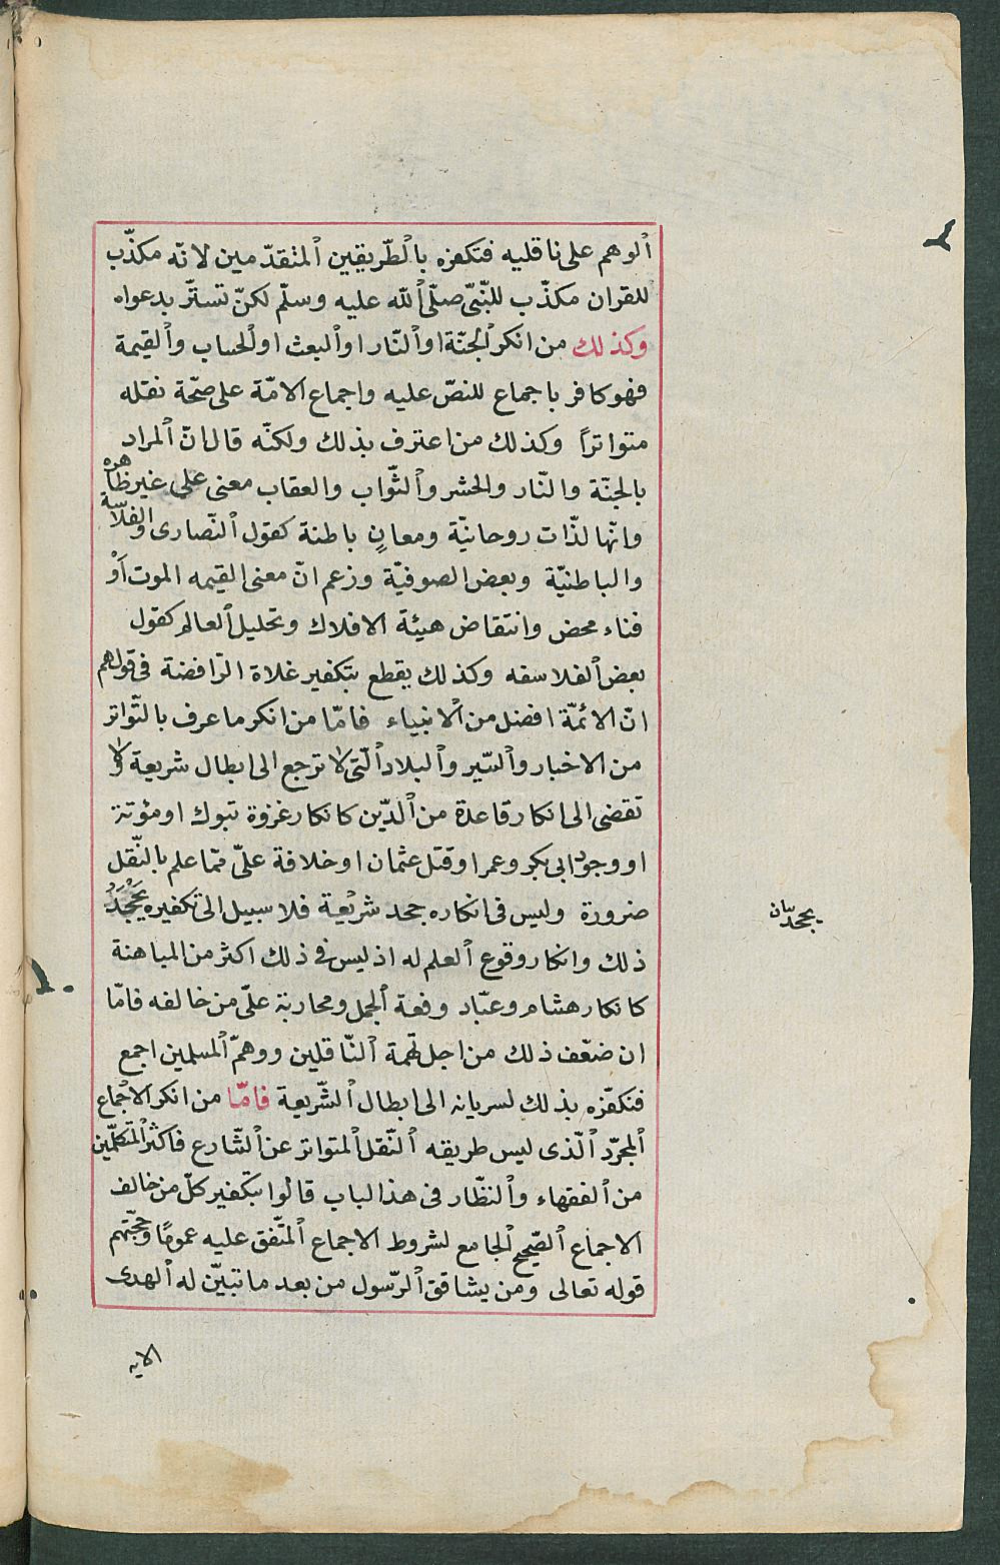 ألوهم على ناقليه فتكفره بالطّريقين ألمتقدّمين لانّه مكذّب
للقران مكذّب للنّبىّ صلّى ألله عليه وسلّم لكنّ تستّر بدعواه
وكذلك من انكر ألجنّة او ألنّار او ألبعث او ألحساب وألقيمة
فهو كافر باجماع للنصّ عليه واجماع الامّة على صحّة نقله
متواتراً وكذلك من اعترف بذلك ولكنّه قال انّ ألمراد
بالجنّة والنّار والحشر وألثّواب والعقاب معنى على غير ظاهره
وانّها لذّات روحانيّة ومعانٍ باطنة كقول ألنّصارى والفلاسة
والباطنيّة وبعض الصوفيّة وزعم انّ معنى القيمه الموت أَوْ
فناء محض وانتقاض هيئة الافلاك وتحليل ألعالم كقول
بعض ألفلاسفه وكذلك يقطع بتكفير غلاة الرّافضة فى قولهم
انّ الائمّة افضل من ألانبياء فامّا من انكر ما عرف بالتّواتر
من الاخبار وألسّير وألبلاد ألّتى لا ترجع الى ابطال شريعة ولا
تفضى الى انكار قاعدة من ألدّين كانكار غزوة تبوك او مؤتة
او وجود ابى بكر وعمر او قتل عثمان او خلافة علىّ ممّا علم بالنّقل
ضرورة وليس فى انكاره جحد شريعة فلا سبيل الى تكفيره بجحد
يجحد بيان
ذلك وانكار وقوع ألعلم له اذ ليس فى ذلك اكثر من المباهتة
كانكار هشام وعبّاد وقعة ألجمل ومحاربة علىّ من خالفه فامّا
ان ضعّف ذلك من اجل تهمة ألنّاقلين ووهّم ألمسلمين اجمع
فنكفّره بذلك لسريانه الى ابطال ألشّريعة فامّا من انكر الاجماع
ألمجرّد ألّذى ليس طريقه ألنّقل ألمتواتر عن ألشّارع فاكثر ألمتكلّمين
من ألفقهاء وألنظّار فى هذا الباب قالوا بتكفير كلّ من خالف
الاجماع ألصّحيح ألجامع لشروط الاجماع ألمتّفق عليه عمومًا وحجّتهم
قوله تعالى ومن يشاقق ألرّسول من بعد ما تبيّن له ألهدى
الايه